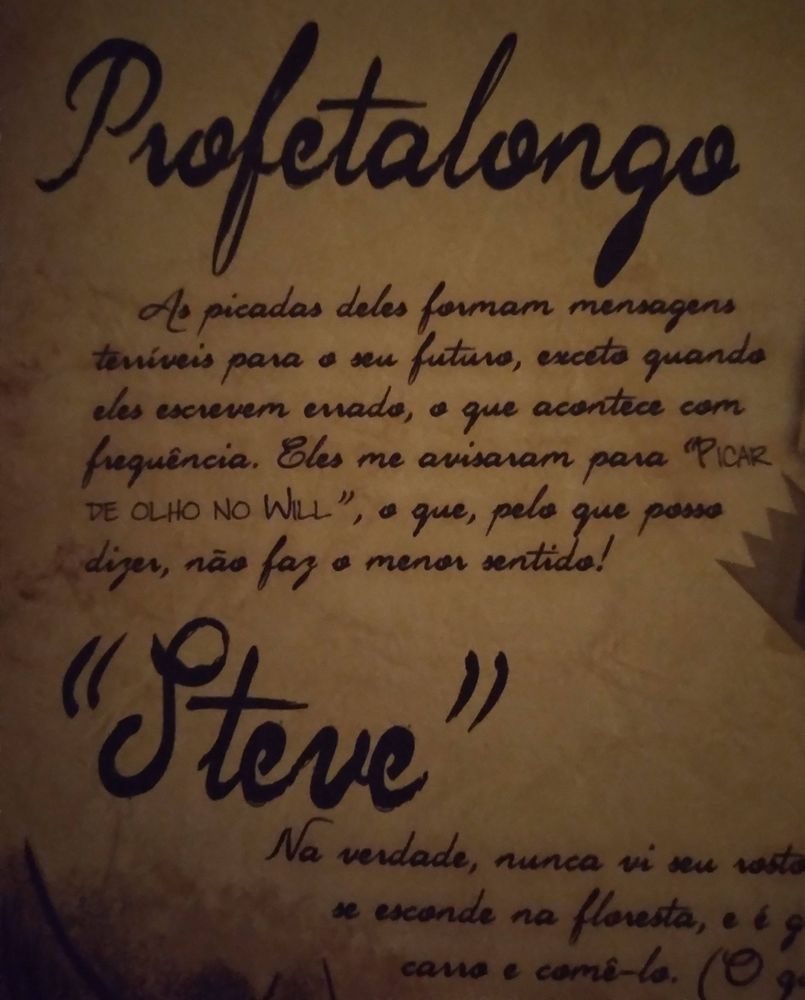 Profetalongo
As picadas deles formam mensagens
terríveis para o seu futuro, exceto quando
eles escrevem errado, o que acontece com
frequência. Eles me avisaram para "PICAR
DE OLHO NO WILL", o que, pelo que posso
dizer, não faz o menor sentido!
"Steve"
Na verdade, nunca vi seu rosto
se esconde na floresta, e é
carro e comê-lo. (O